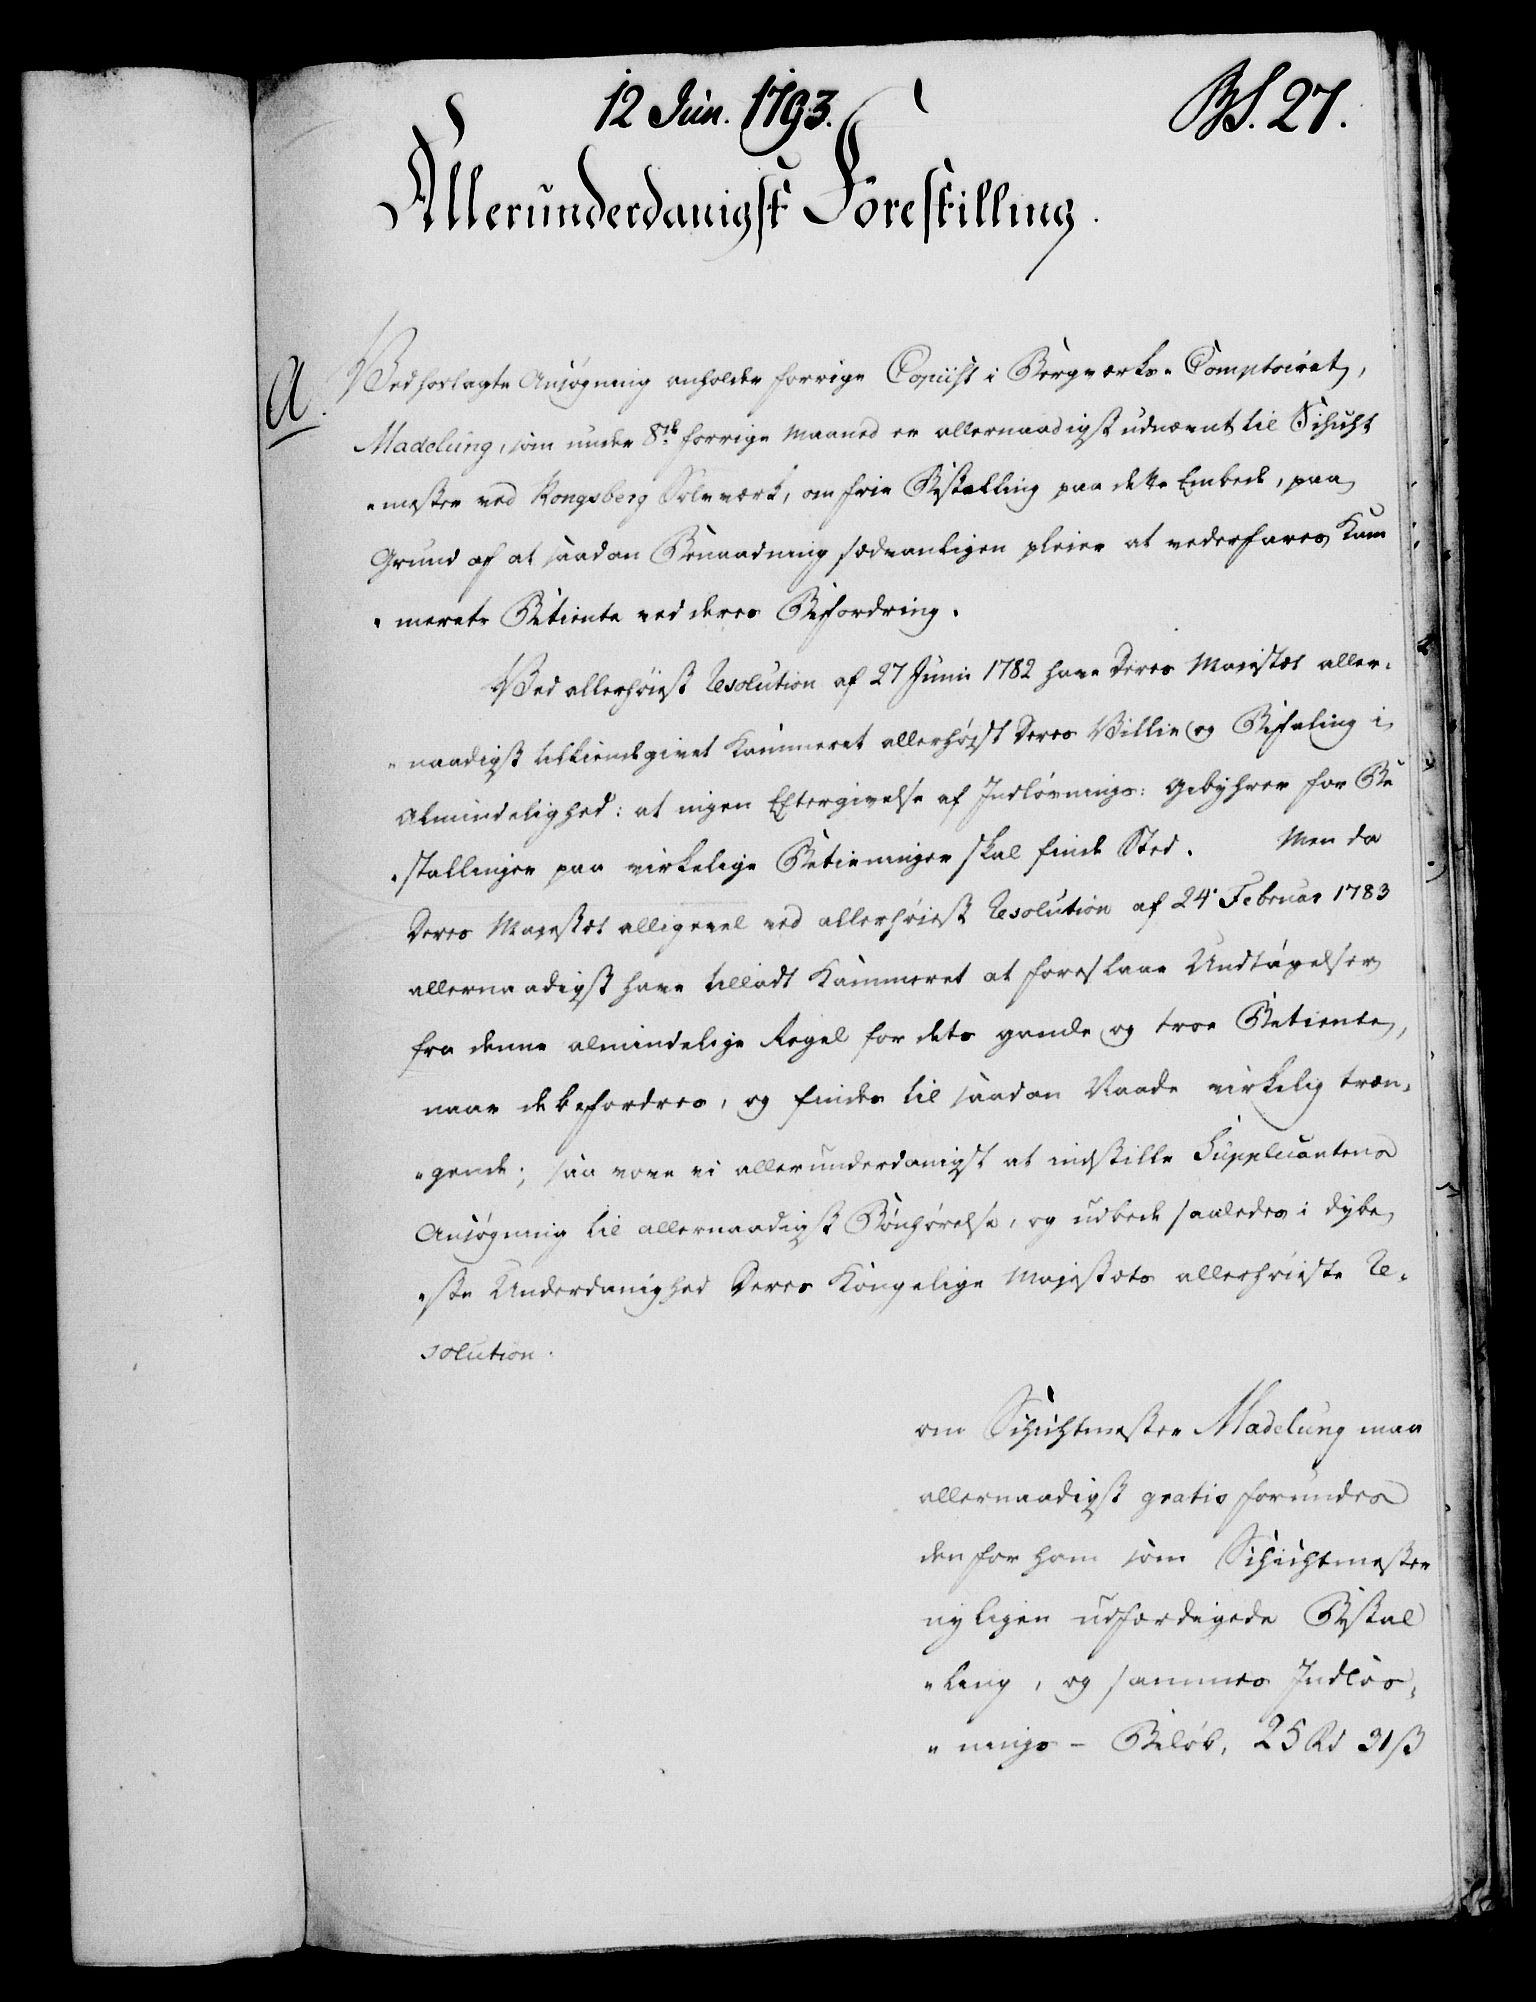 12 Jun. 1793.
BS. 27.
Allerunderdanigst Forestilling.
A.
Vedhoslagte Ansøgning anholder forrige Copiist i Bergverks-Comptoiret,
Madelung, som under 8de forrige Maaned er allernaadigst udnævnt til Schicht
"mester ved Kongsberg Sølvværk, om frie Bestalling paa dette Embede, paa
Grund af at saadan Benaadning sædvanligen pleier at vederfares Kam
"merets Betiente ved deres Befordring.
Ved allerhøiest Resolution af 27 Junii 1782 have Deres Majestæt aller-
"naadigst tilkiendegivet Kammeret allerhøist Deres Villie og Befaling i
Almindelighed: at ingen Eftergivelse af Indløsnings: Gebyhrer for Be
"stallinger paa virkelige Betieninger skal finde Sted. Men da
Deres Majestæt alligevel ved allerhøiest Resolution af 24. Februar 1783
allernaadigst have tilladt Kammeret at foreslaae Undtagelser
fra denne almindelige Regel for dets gamle og troe Betiente,
naar de befordres, og findes til saadan Naade virkelig træn-
"gende; saa vove vi allerunderdanigst at indstille Supplicantens
Ansøgning til allernaadigst Bønhørelse, og udbede saaledes i dybe
"ste Underdanighed Deres Kongelige Majestæts allerhøieste Re-
solution.
om Schichtmester Madelung maa
allernaadigst gratis forundes
den for ham som Schichtmester
nyligen udfærdigede Bestal
"ling, og sammes Indløs-
"nings- Beløb, 25 Rd 31 ß